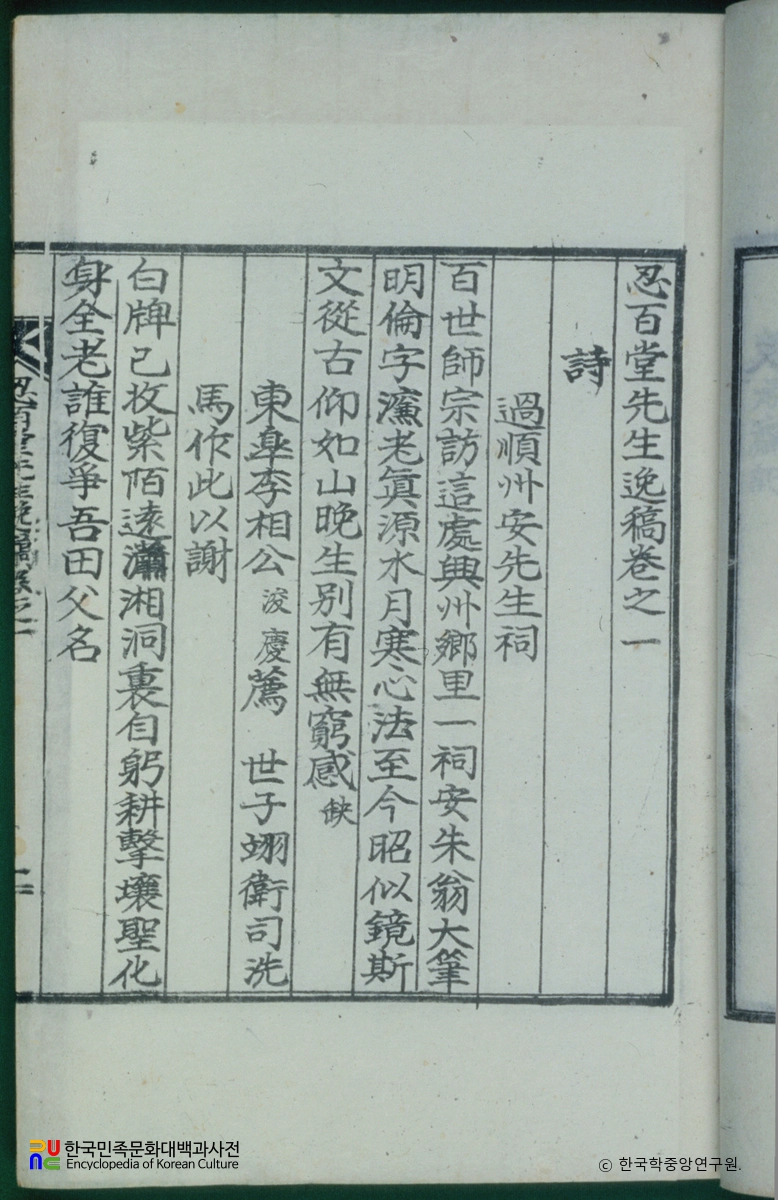 忍百堂先生逸稿卷之一
詩
過順州安先生祠
百世師宗訪這處興州鄉里一祠安朱翁大筆
明倫字濂老眞源水月寒心法至今昭似鏡斯
文從古仰如山晚生別有無窮感缺
東皐李相公浚慶薦 世子翊衛司洗
馬作此以謝
白牌已收紫陌遠瀟湘洞裏自躬耕擊壤聖化
身全老誰復爭吾田父名
忍百堂先生逸稿卷之一
한국민족문화대백과사전
Encyclopedia of Korean Culture
ⓒ 한국학중앙연구원.